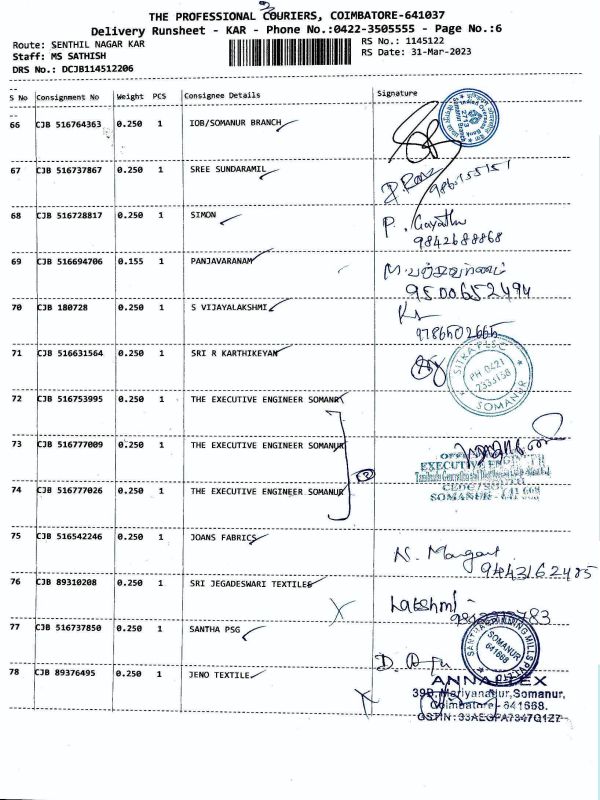 THE PROFESSIONAL COURIERS, COIMBATORE-641037
Delivery Runsheet - KAR - Phone No.:0422-3505555 - Page No.:6
Route: SENTHIL NAGAR KAR
RS No.: 1145122
Staff: MS SATHISH
RS Date: 31-Mar-2023
DRS No.: DCJB114512206
S No Consignment No Weight PCS Consignee Details Signature
66 CJB 516764363 0.250 1 IOB/SOMANUR BRANCH
67 CJB 516737867 0.250 1 SREE SUNDARAMIL
68 CJB 516728817 0.250 1 SIMON P. Gayathri
9842688868
69 CJB 516694706 0.155 1 PANJAVARANAM
9500652494
70 CJB 180728 0.250 1 S VIJAYALAKSHMI
9786502665
71 CJB 516631564 0.250 1 SRI R KARTHIKEYAN
PH 0421
SOMANUR
72 CJB 516753995 0.250 1 THE EXECUTIVE ENGINEER SOMANR
73 CJB 516777009 0.250 1 THE EXECUTIVE ENGINEER SOMANUR
EXECUTIVE
74 CJB 516777026 0.250 1 THE EXECUTIVE ENGINEER SOMANUR
SOMANUR - 641 668
75 CJB 516542246 0.250 1 JOANS FABRICS
9443162485
76 CJB 89310208 0.250 1 SRI JEGADESWARI TEXTILES Lakshmi
77 CJB 516737850 0.250 1 SANTHA PSG
SOMANUR
641668
78 CJB 89376495 0.250 1 JENO TEXTILE
ANNAPTEX
39B, Mariyanagur, Somanur,
Coimbatore - 641668.
GSTIN : 33AEGPA7347Q1Z7